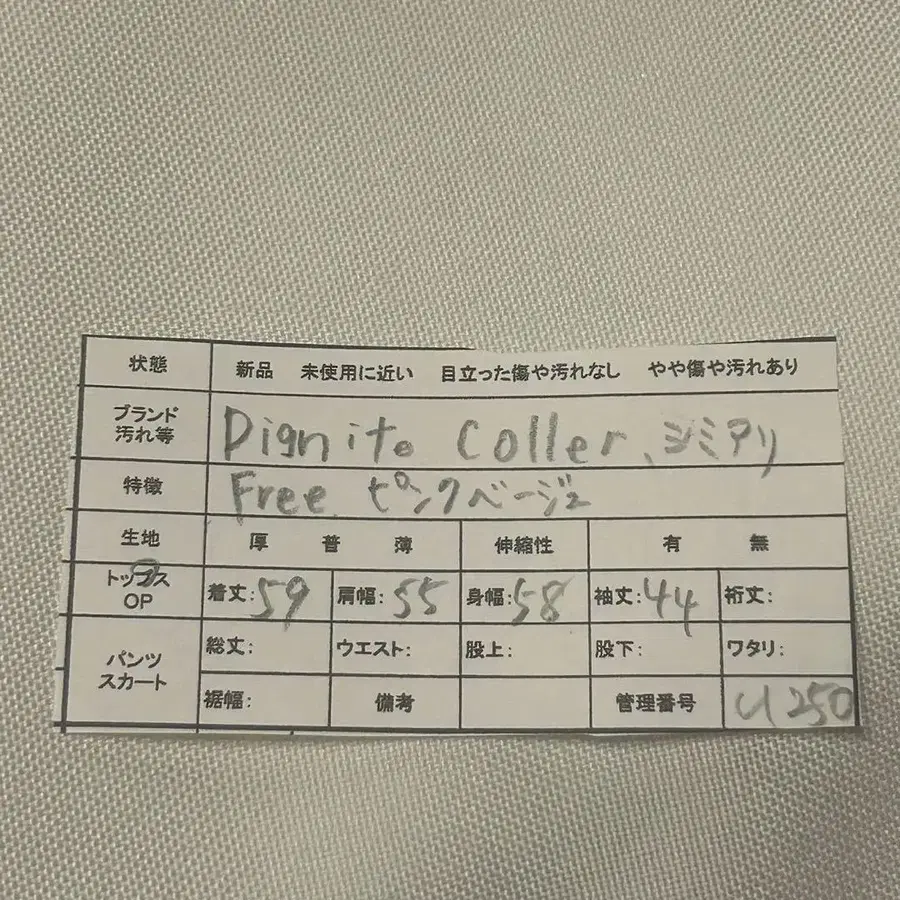 状態 新品 未使用に近い 目立った傷や汚れなし やや傷や汚れあり
ブランド 汚れ等 Dignite Coller、シミアリ
特徴 Free ピンクベージュ
生地 厚 普 薄 伸縮性 有 無
トップス OP 着丈:59 肩幅:55 身幅:58 袖丈:44 裄丈:
パンツ スカート 総丈: ウエスト: 股上: 股下: ワタリ:
裾幅: 備考 管理番号 U250